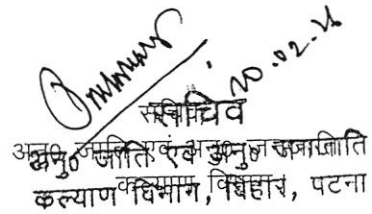 20.02.26
सचिव
अनु० जाति एवं अनु० जनजाति
कल्याण विभाग, बिहार, पटना